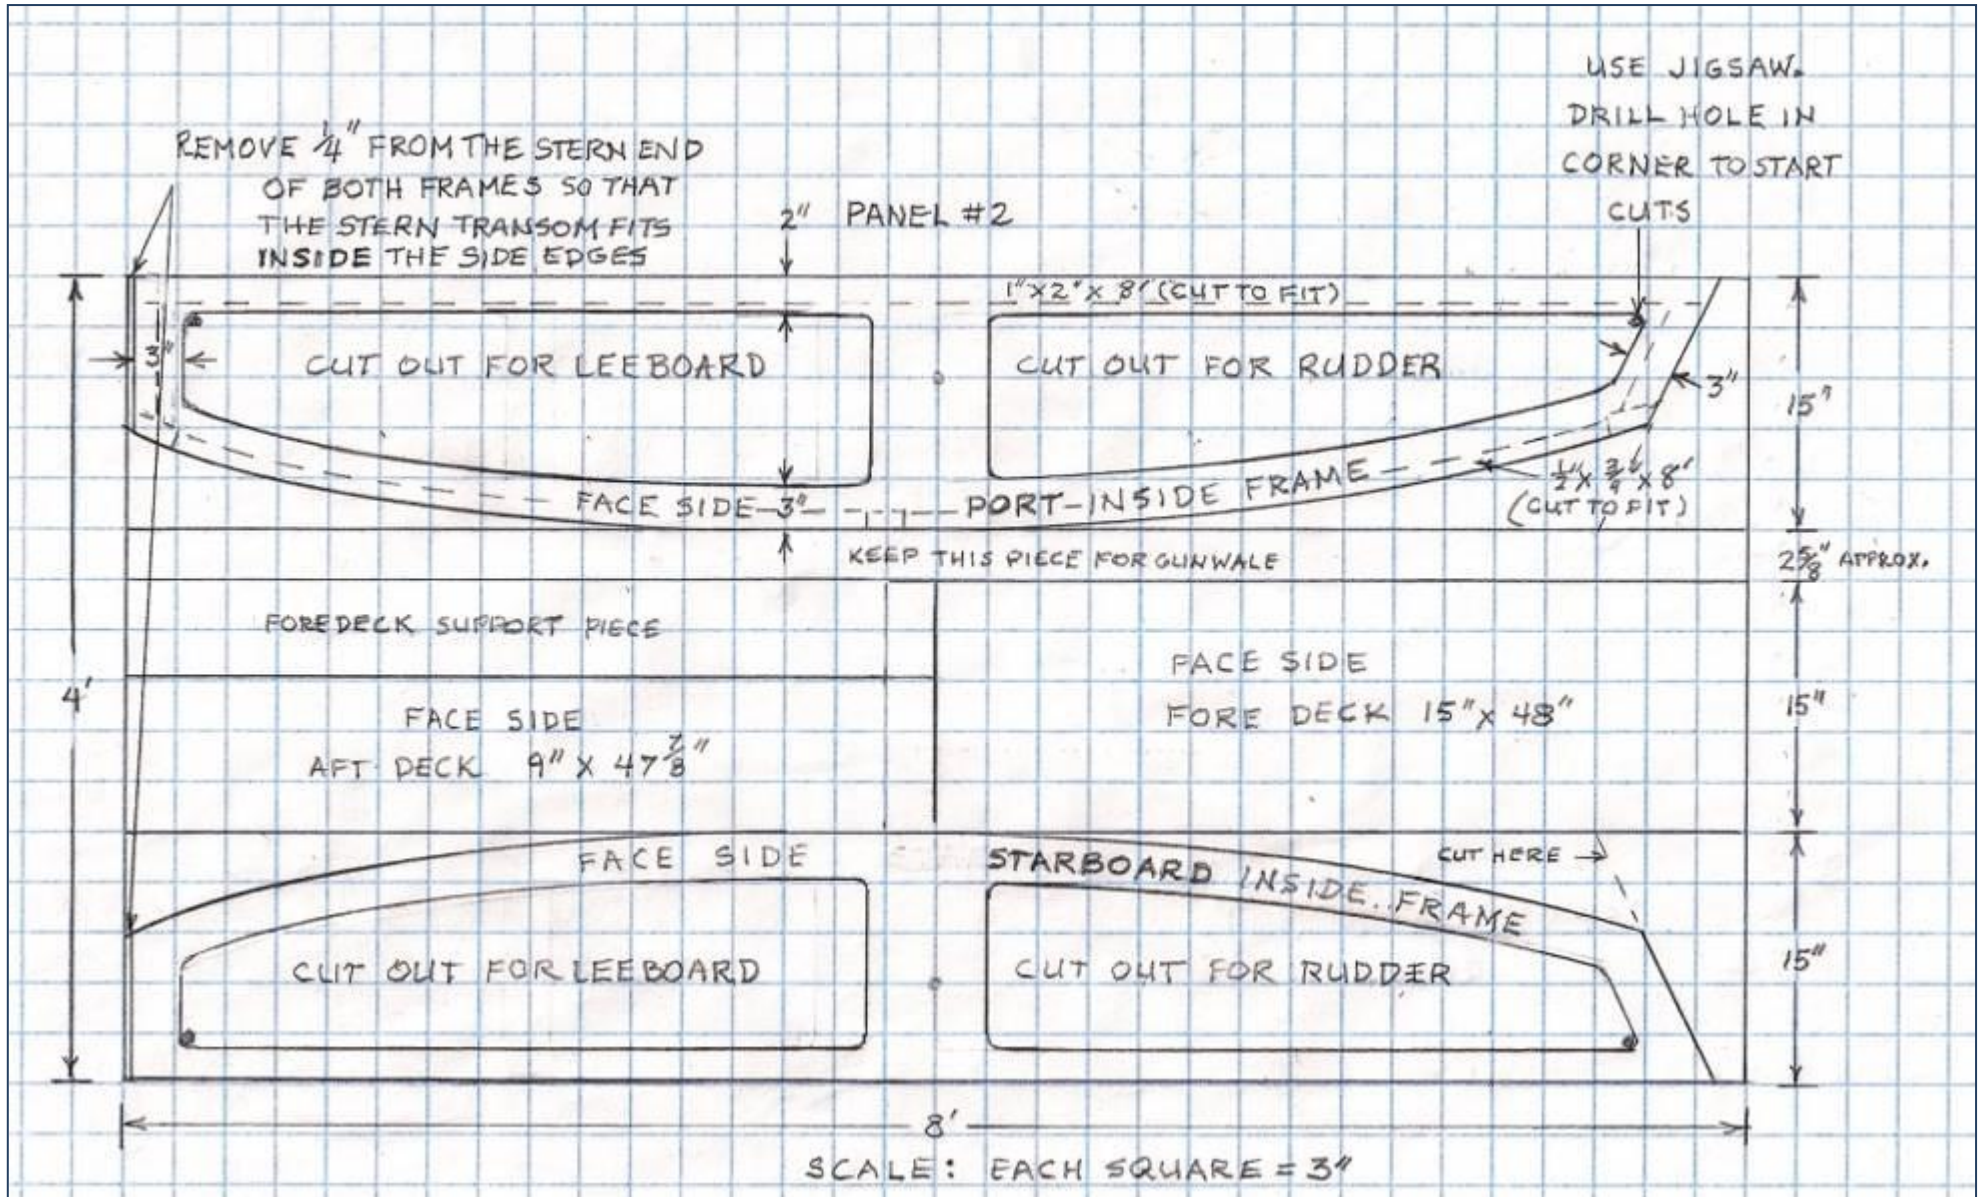 USE JIGSAW.
DRILL HOLE IN
CORNER TO START
CUTS
REMOVE 1/4" FROM THE STERN END
OF BOTH FRAMES SO THAT
THE STERN TRANSOM FITS
INSIDE THE SIDE EDGES
2" PANEL #2
1" X 2" X 8' (CUT TO FIT)
3"
CUT OUT FOR LEEBOARD
CUT OUT FOR RUDDER
3"
15"
1/2" X 3/4" X 8'
(CUT TO FIT)
FACE SIDE 3"
PORT-INSIDE FRAME
KEEP THIS PIECE FOR GUNWALE
2 5/8" APPROX.
FOREDECK SUPPORT PIECE
FACE SIDE
FORE DECK 15" X 48"
15"
4'
FACE SIDE
AFT DECK 9" X 47 7/8"
FACE SIDE
STARBOARD INSIDE FRAME
CUT HERE
CUT OUT FOR LEEBOARD
CUT OUT FOR RUDDER
15"
8'
SCALE: EACH SQUARE = 3"